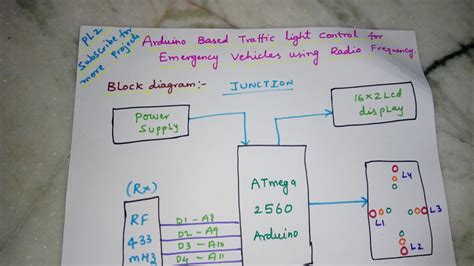 PLZ
Subscribe for
more Projects
Arduino Based Traffic light control for
Emergency Vehicles using Radio Frequency.
Block diagram:-
JUNCTION
Power
Supply
16x2 Lcd
display
ATmega
2560
Arduino
(Rx)
RF
433
mHz
D1 - A8
D2 - A9
D3 - A10
D4 - A11
L4
L1
L3
L2